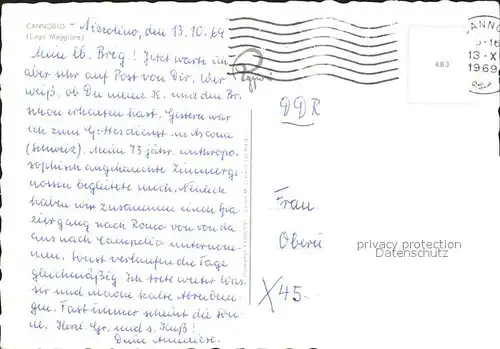 CANNOBIO - Nizzolino, den 13.10.69
(Lago Maggiore)
Mein lb. Brig.! Jetzt warte ich
aber sehr auf Post von Dir. Wer
weiß, ob Du meine K. und den Br.
schon erhalten hast. Gestern war
ich zum Gottesdienst in Ascona
(Schweiz). Mein 73 jähr. anthropo-
sophisch angehauchter Zimmerge-
nosse begleitete mich. Neulich
haben wir zusammen einen Spa-
ziergang nach Ronco von von da
aus nach unternom-
men. Sonst verlaufen die Tage
gleichmäßig. Ich trete weiter Was-
ser und mache kalte Abreibun-
gen. Fast immer scheint die Son-
ne. Herzl. Gr. und s. Kuß!
Dein
DDR
Frau
Oberei
X 45-
483
ANNO
-16
13-X
1969
privacy protection
Datenschutz